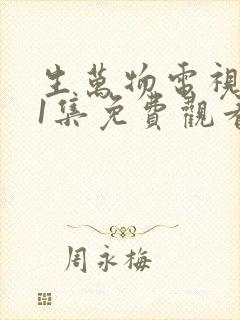 生萬物電視
1集免費觀看
周永梅